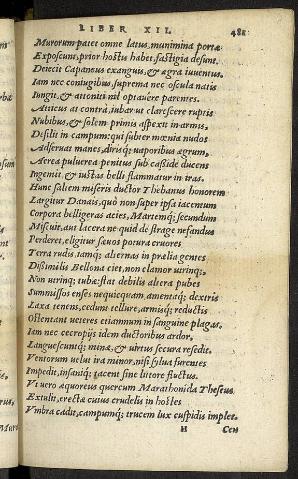 LIBER XII. 481
Murorum patet omne latus, munimina portæ
Exposcunt, prior hostis habet, fastigia desunt.
Deiecit Capaneus exanguis, & ægra iuuentus.
Iam nec contiguibus, suprema nec oscula natis
Iungit, & attoniti nil optauere parentes.
Atticus at contrà, iubar ut clarescere ruptis
Nubibus, & solem primis aspexit in armis,
Desilit in campum: qui subter mœnia nudos
Adseruat manes, dirisq; uaporibus ægrum,
Aërea puluerea penitus sub casside ducens
Ingemit, & iustas belli flammatur in iras.
Hunc saltem miseris ductor Thebanus honorem
Largitur Danais, quòd non super ipsa iacentum
Corpora belligeras acies, Martemq; secundum
Miscuit, aut lacera ne quid de strage nefandus
Perderet, eligitur sæuos potura cruores
Terra rudis. iamq; alternas in prælia gentes
Dissimilis Bellona ciet, non clamor utrinq;,
Non utrinq; tubæ: stat debilis altera pubes
Summissos enses nequicquam, amentaq; dextris
Laxa tenens, cedunt tellure, armisq; reductis
Ostentant ueteres etiamnum in sanguine plagas.
Iam nec cecropijs idem ductoribus ardor,
Languescuntq; minæ, & uirtus secura resedit.
Ventorum uelut ira minor, nisi sylua furentes
Impedit, insaniq; tacent sine littore fluctus.
Vt uero æquoreus quercum Marathonida Theseus
Extulit, erectæ cuius crudelis in hostes
Vmbra cadit, campumq; trucem lux cuspidis implet.
H Ceu